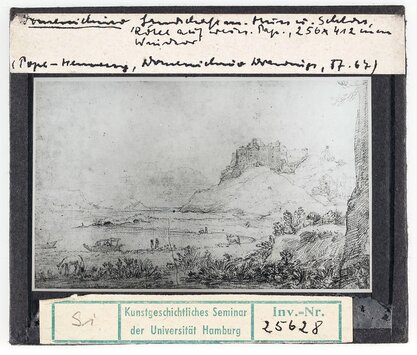 Domenichino Landschaft m. Fluss u. Schloss,
Rötel auf weiss. Pap., 256 x 412 mm
Windsor
(Pope-Hennessy, Domenichino Drawings, Tf. 67)
Si
Kunstgeschichtliches Seminar
der Universität Hamburg
Inv.-Nr.
25628